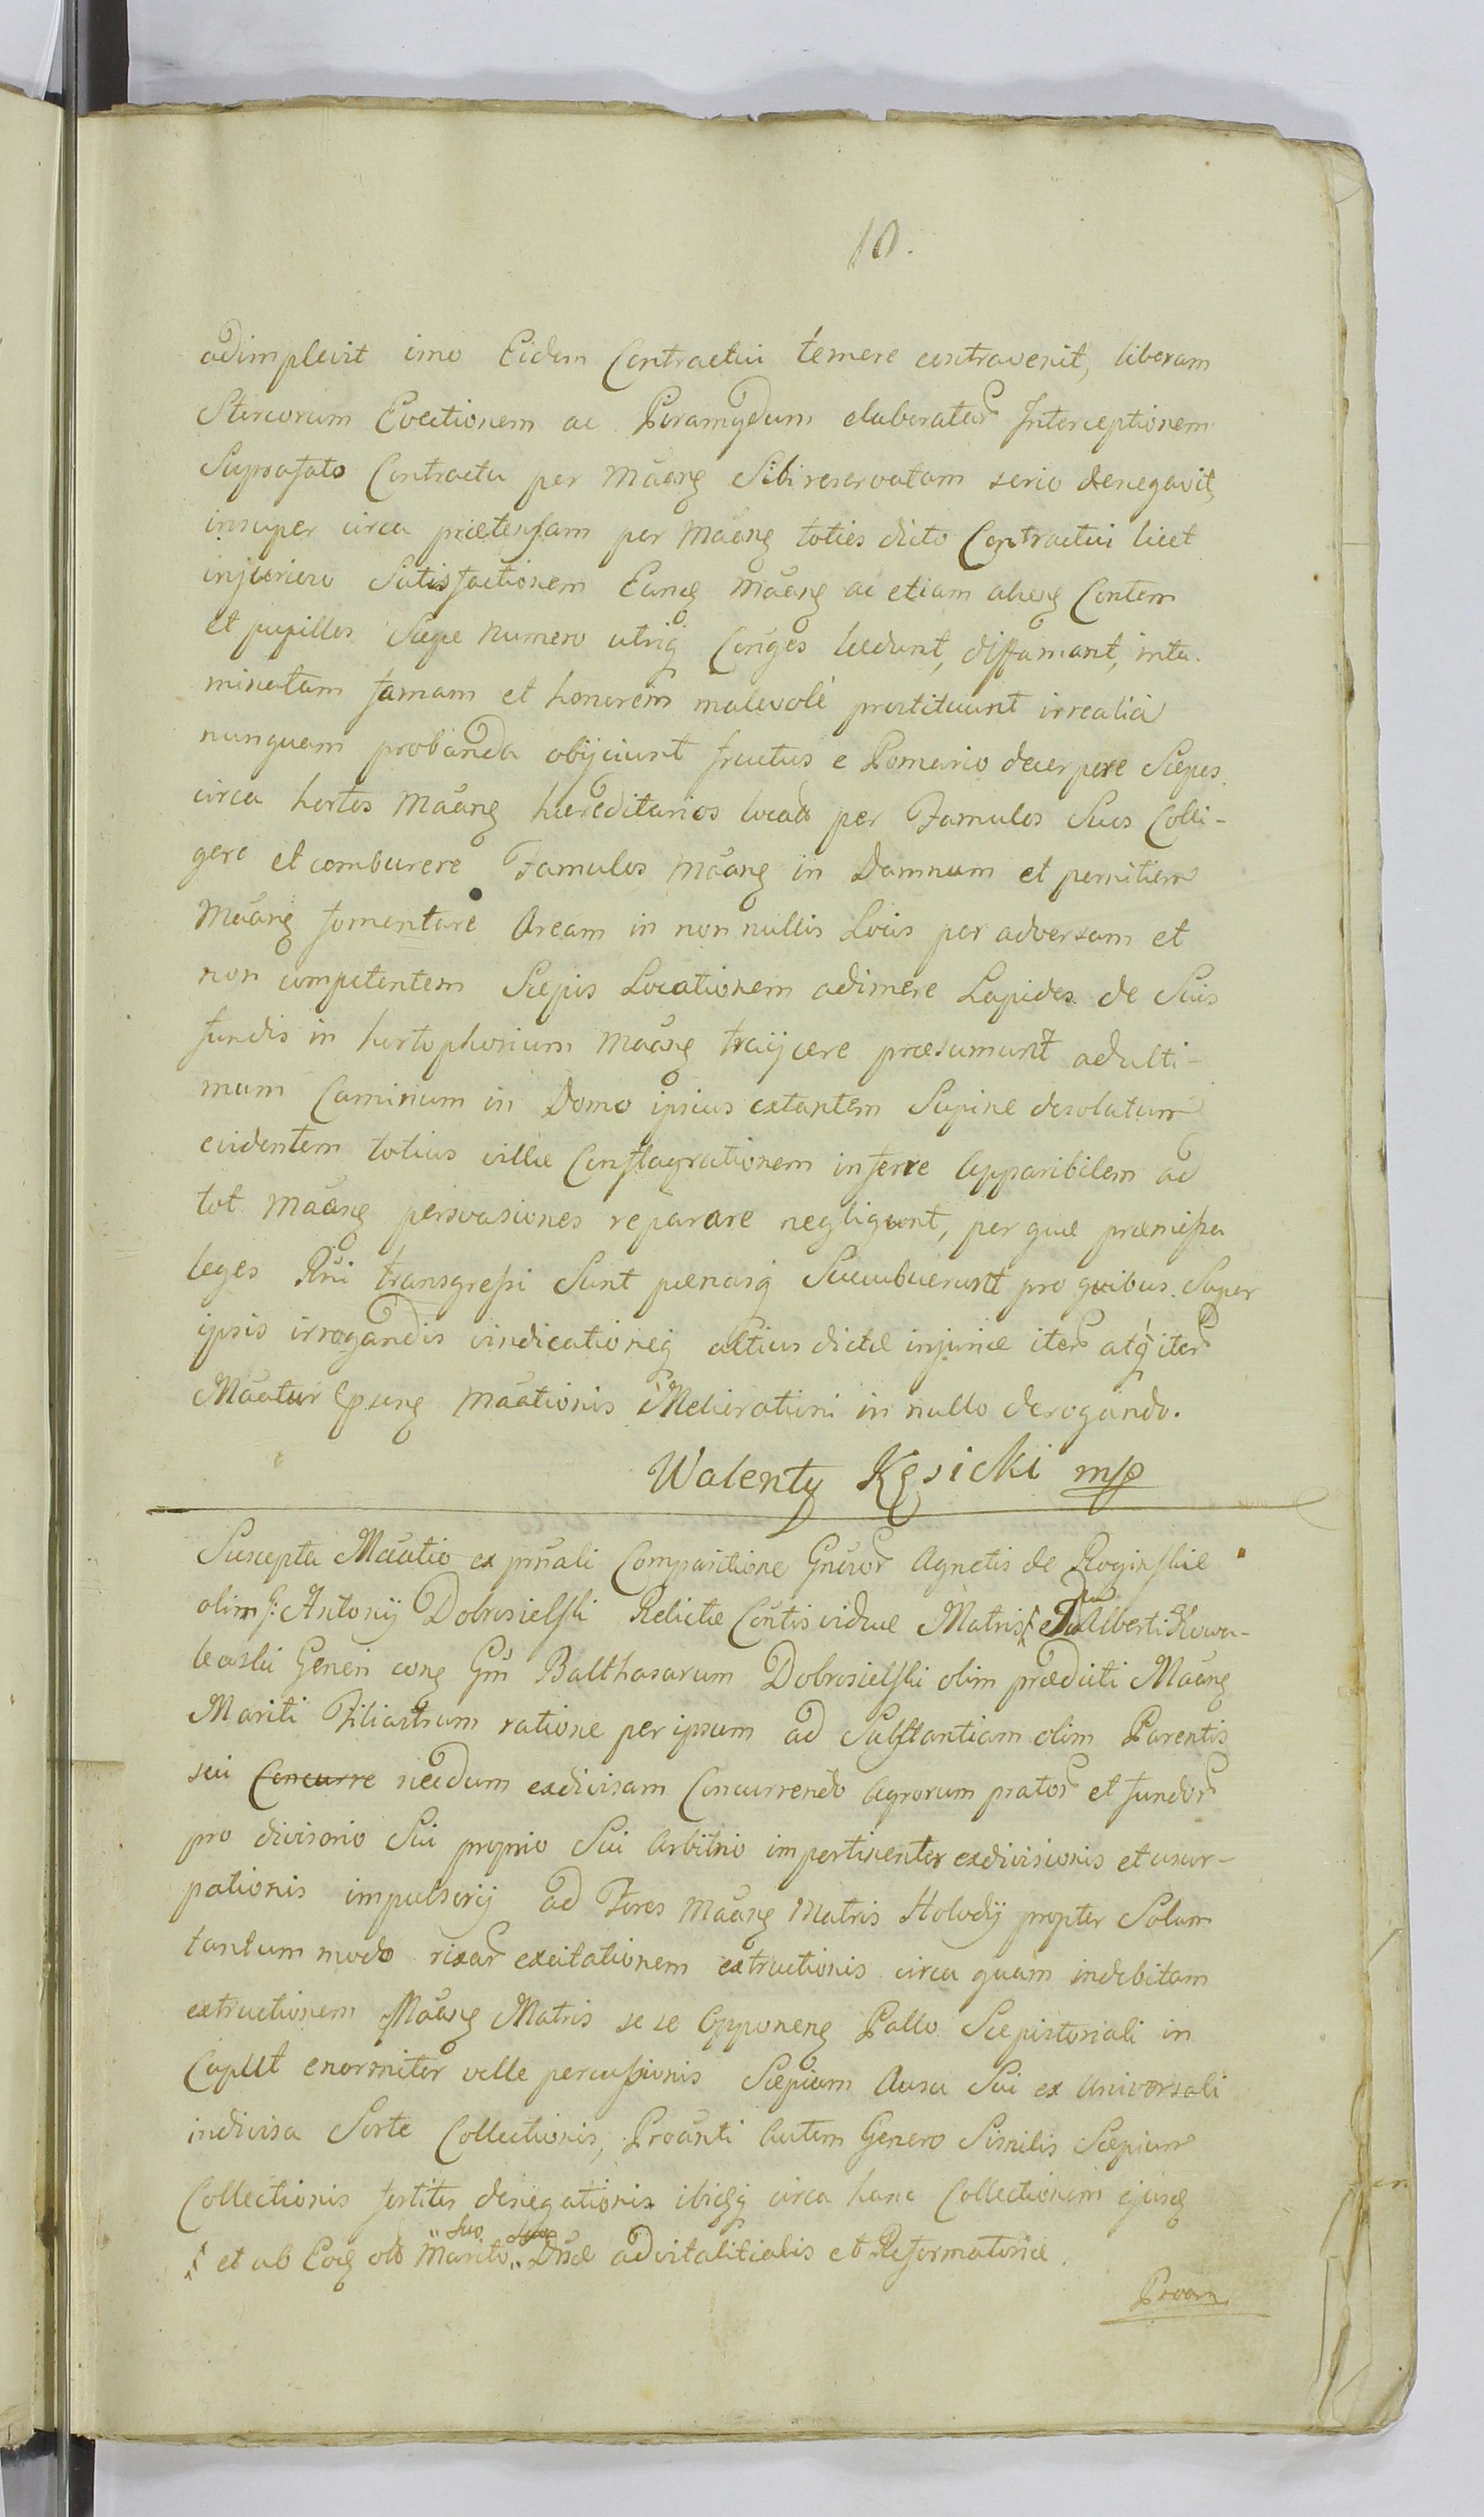 10.
adimplevit imo Eidem Contractui temere contravenit, liberam
Stercorum Evectionem ac Piramydum elaboratar Interceptionem
Suprafato Contractu per Mãang Sibi reservatam serio denegavit,
insuper circa prætensam per Mãang toties dicto Contractui licet
injurioso Satisfactionem Eandg Mãang ac etiam Contem
et pupillos Sæpe numero utriq Conges lædunt, diffamant, inta-
minatam famam et honorem malevolè prostituunt irrealia
nunquam probanda obijciunt fructus e Pomario decerpere Sæpes
circa hortos Mãang hæreditarios locat per Famulos Suos Colli-
gere et comburere Famulos Mãang in Damnum et pernitiem
Mãang fomentare Aream in non nullis Locis per adversam et
non competentem Sæpis Locationem adimere Lapides de Suis
fundis in hortophorium Mãang traijcere præsumunt ad ulti-
mum Caminum in Domo ipsius extantem Supine desolatum
evidentem totius villæ Conflagrationem inferre Apparibilem ad
tot Mãang persvasiones reparare negligunt, per quæ præmissa
leges Rñi transgressi Sunt pænasq Succubuerunt pro quibus Super
ipsis irrogandis vindicationeq altius dictæ injuriæ iter atq iter
Mãatur Mãationis Meliorationi in nullo derogando.
Walenty Kęsicki mp
Suscepta Mãatio ex pñali Comparitione Gñror Agnetis de Roginskie
olim Antonij Dobrosielski Relictæ Contis viduæ Matris et Alberti Kowa-
lewski Generi cong Gm Balthasarum Dobrosielski olim prædicti Mãang
Mariti Filiastrum ratione per ipsum ad Substantiam olim Parentis
sui Concurre necdum exdivisam Concurrendo Agrorum prator et fundor
pro divisorio Sui proprio Sui Arbitrio impertinenter exdivisionis et usur-
pationis impulsorij ad Fores Mãang Matris Holodij propter Solum
tantum modo rixar excitationem extructionis circa quam indebitam
extructionem Mãang Matris se se Opponeng Pallo Sæpistoriali in
Caput enormiter velle percussionis Sæpium Ausu Sui ex Universali
indivisa Sorte Collectionis, Proãnti Autem Genero Similis Sæpium
Collectionis fortiter denegationis ibidq circa hanc Collectionem ejusd
et ab Eod olo Marito Suo Dñæ advitalitialis et Reformatoriæ.
Proan